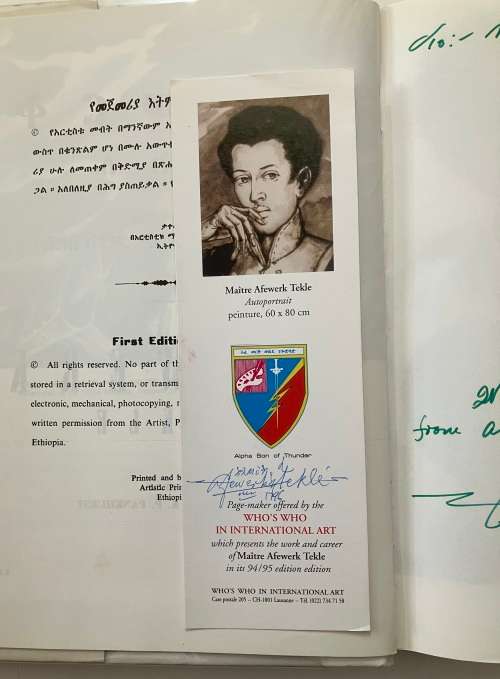 የመጀመሪያ እትም
© የአርቲስቱ መብት በማንኛውም አ
ውስጥ በቁንጽልም ሆነ በሙሉ አውጥቶ
ሪያ ሁሉ ለመጠቀም በቅድሚያ በጽሑ
ጋል ። አለበለዚያ በሕግ ያስጠይቃል ።
በአርቲስቲክ ማ
ኢትዮ
First Editi
© All rights reserved. No part of th
stored in a retrieval system, or transm
electronic, mechanical, photocopying, r
written permission from the Artist, P
Ethiopia.
Printed and b
Artistic Prin
Ethiopi
Maître Afewerk Tekle
Autoportrait
peinture, 60 x 80 cm
Alpha Son of Thunder
Afewerk Tekle
Page-maker offered by the
WHO'S WHO
IN INTERNATIONAL ART
which presents the work and career
of Maître Afewerk Tekle
in its 94/95 edition edition
WHO'S WHO IN INTERNATIONAL ART
Case postale 205 – CH-1001 Lausanne – Tél. (022) 734 71 58
from a